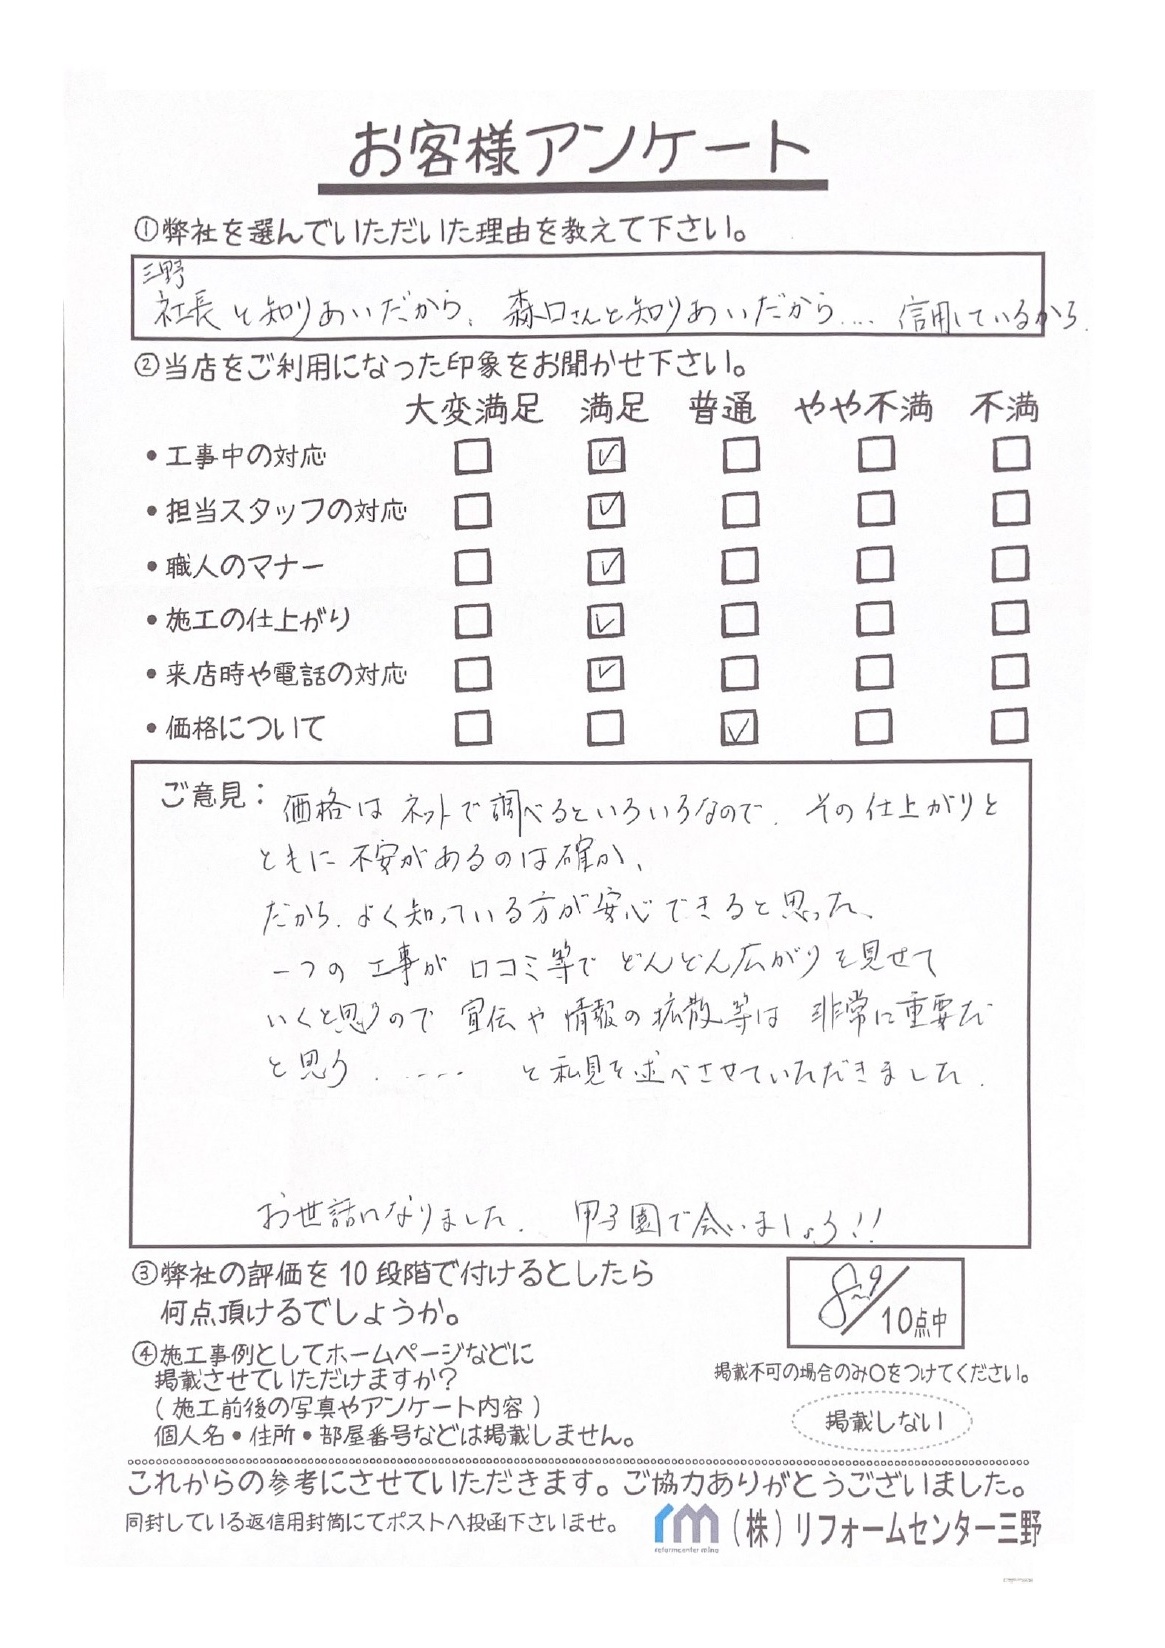 お客様アンケート
①弊社を選んでいただいた理由を教えて下さい。
三野
社長と知りあいだから、森口さんと知りあいだから.... 信用しているから.
②当店をご利用になった印象をお聞かせ下さい。
大変満足 満足 普通 やや不満 不満
•工事中の対応
•担当スタッフの対応
•職人のマナー
•施工の仕上がり
•来店時や電話の対応
•価格について
ご意見：価格はネットで調べるといろいろなので、その仕上がりと
ともに不安があるのは確か、
だから、よく知っている方が安心できると思った、
一つの工事が口コミ等でどんどん広がりを見せて
いくと思うので宣伝や情報の拡散等は非常に重要だ
と思う ..... と私見を述べさせていただきました.
お世話になりました. 甲子園で会いましょう!!
③弊社の評価を10段階で付けるとしたら
何点頂けるでしょうか。
8~9/10点中
④施工事例としてホームページなどに
掲載させていただけますか？
(施工前後の写真やアンケート内容)
個人名•住所•部屋番号などは掲載しません。
掲載不可の場合のみ〇をつけてください。
掲載しない
これからの参考にさせていただきます。ご協力ありがとうございました。
同封している返信用封筒にてポストへ投函下さいませ。
rm reformcenter mino (株)リフォームセンター三野